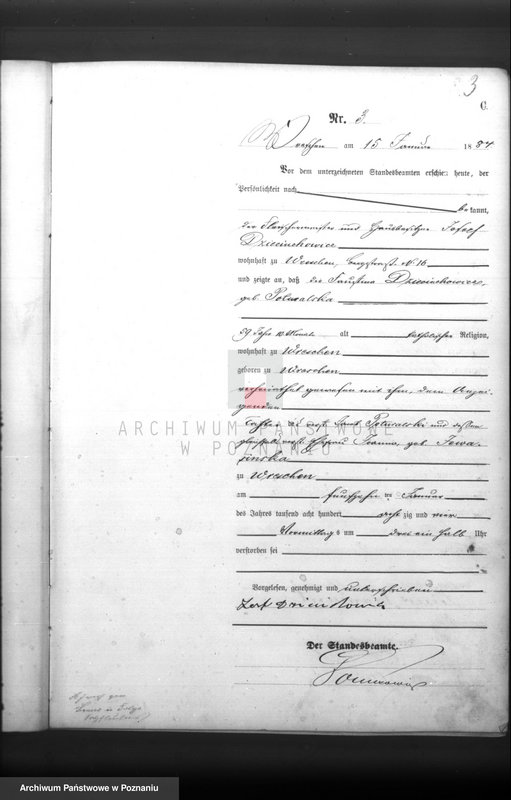 3
C.
Nr. 3.
Wreschen am 15 Januar 1884
Vor dem unterzeichneten Standesbeamten erschien heute, der
Persönlichkeit nach
bekannt,
der Fleischermeister und Hausbesitzer Joseph
Dzieciuchowicz
wohnhaft zu Wreschen, N. 16
und zeigte an, daß die Faustina Dzieciuchowicz,
geb.
59 Jahr 10 Monate alt katholischer Religion,
wohnhaft zu Wreschen
geboren zu Wreschen
verheirathet gewesen mit ihm, dem Anzei-
genden
Tochter des und dessen
Ehefrau geb.
zu Wreschen
am fünfzehnten Januar
des Jahres tausend acht hundert achtzig und vier
Vormittags um drei ein halb Uhr
verstorben sei
Vorgelesen, genehmigt und unterschrieben
Der Standesbeamte.
ARCHIWUM PAŃSTWOWE
W POZNANIU
Archiwum Państwowe w Poznaniu
Archiwum Państwowe w Poznaniu